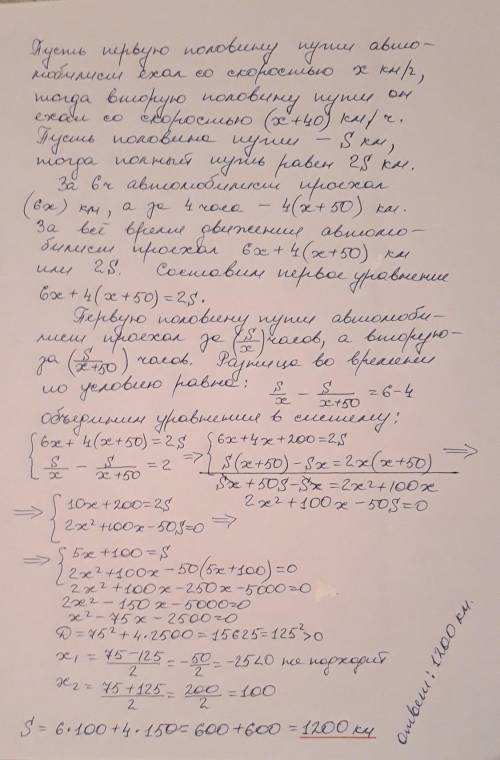 Пусть первую половину пути авто-
мобилист ехал со скоростью x км/ч,
тогда вторую половину пути он
ехал со скоростью (x+40) км/ч.
Пусть половина пути – S км,
тогда полный путь равен 2S км.
За 6ч автомобилист проехал
(6x) км, а за 4 часа – 4(x+50) км.
За всё время движения автомо-
билист проехал 6x+4(x+50) км
или 2S. Составим первое уравнение
6x+4(x+50)=2S.
Первую половину пути автомоби-
лист проехал за (S/x) часов, а вторую-
за (S/(x+50)) часов. Разница во времени
по условию равна: S/x – S/(x+50) = 6-4
Объединим уравнения в систему:
{6x+4(x+50)=2S => {6x+4x+200=2S =>
{S/x – S/(x+50) = 2 {S(x+50)–Sx=2x(x+50)
Sx+50S-Sx=2x²+100x
2x²+100x-50S=0
=> {10x+200=2S
{2x²+100x-50S=0 =>
=> {5x+100=S
{2x²+100x-50(5x+100)=0
2x²+100x-250x-5000=0
2x²-150x-5000=0
x²-75x-2500=0
D=75²+4·2500=15625=125²>0
x₁ = (75-125)/2 = -50/2 = -25<0 не подходит
x₂ = (75+125)/2 = 200/2 = 100
S = 6·100+4·150=600+600=1200 км
ответ: 1200 км.